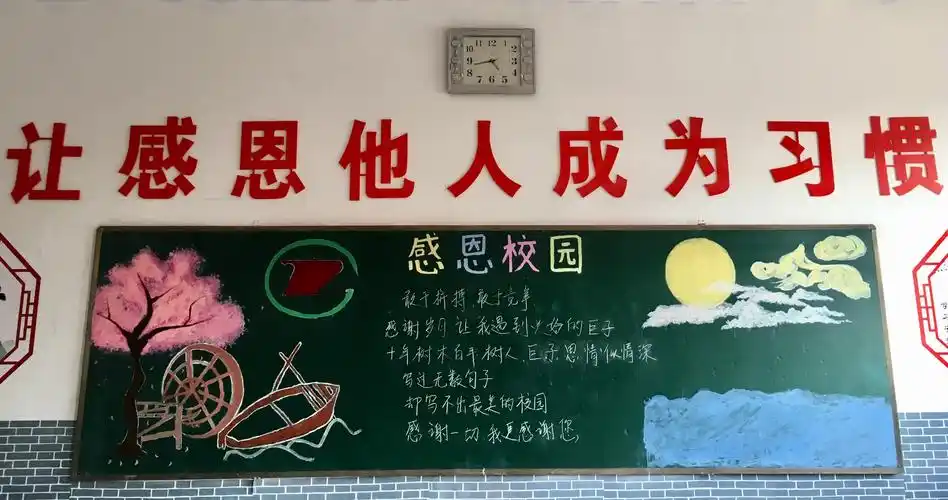 让感恩他人成为习惯
感恩校园
敢于拼搏 敢于竞争
感谢岁月让我遇到 的巨子
十年树木百年树人 巨子恩情似情深
写过无数句子
却写不出最美的校园
感谢一切 我更感谢您